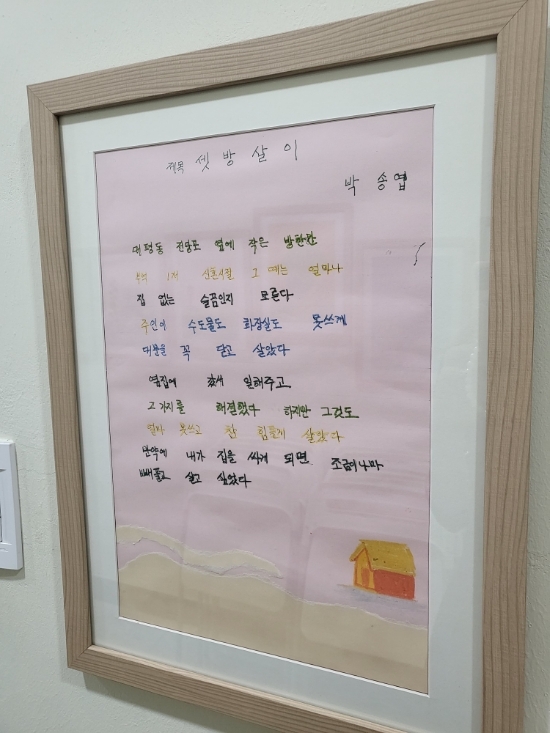 제목 셋방살이
박송엽
대평동 진농포 옆에 작은 방한칸
신혼시절 그 때는 얼마나
집 없는 슬픔인지 모른다
주인이 수도물도 화장실도 못쓰게
대문을 꼭 닫고 살았다
옆집에 가서 일해주고
그거지를 해결했다 하지만 그것도
얼마 못쓰고 참 힘들게 살았다
만약에 내가 집을 싸게 되면 조금이나마
빼풀고 살고 싶었다